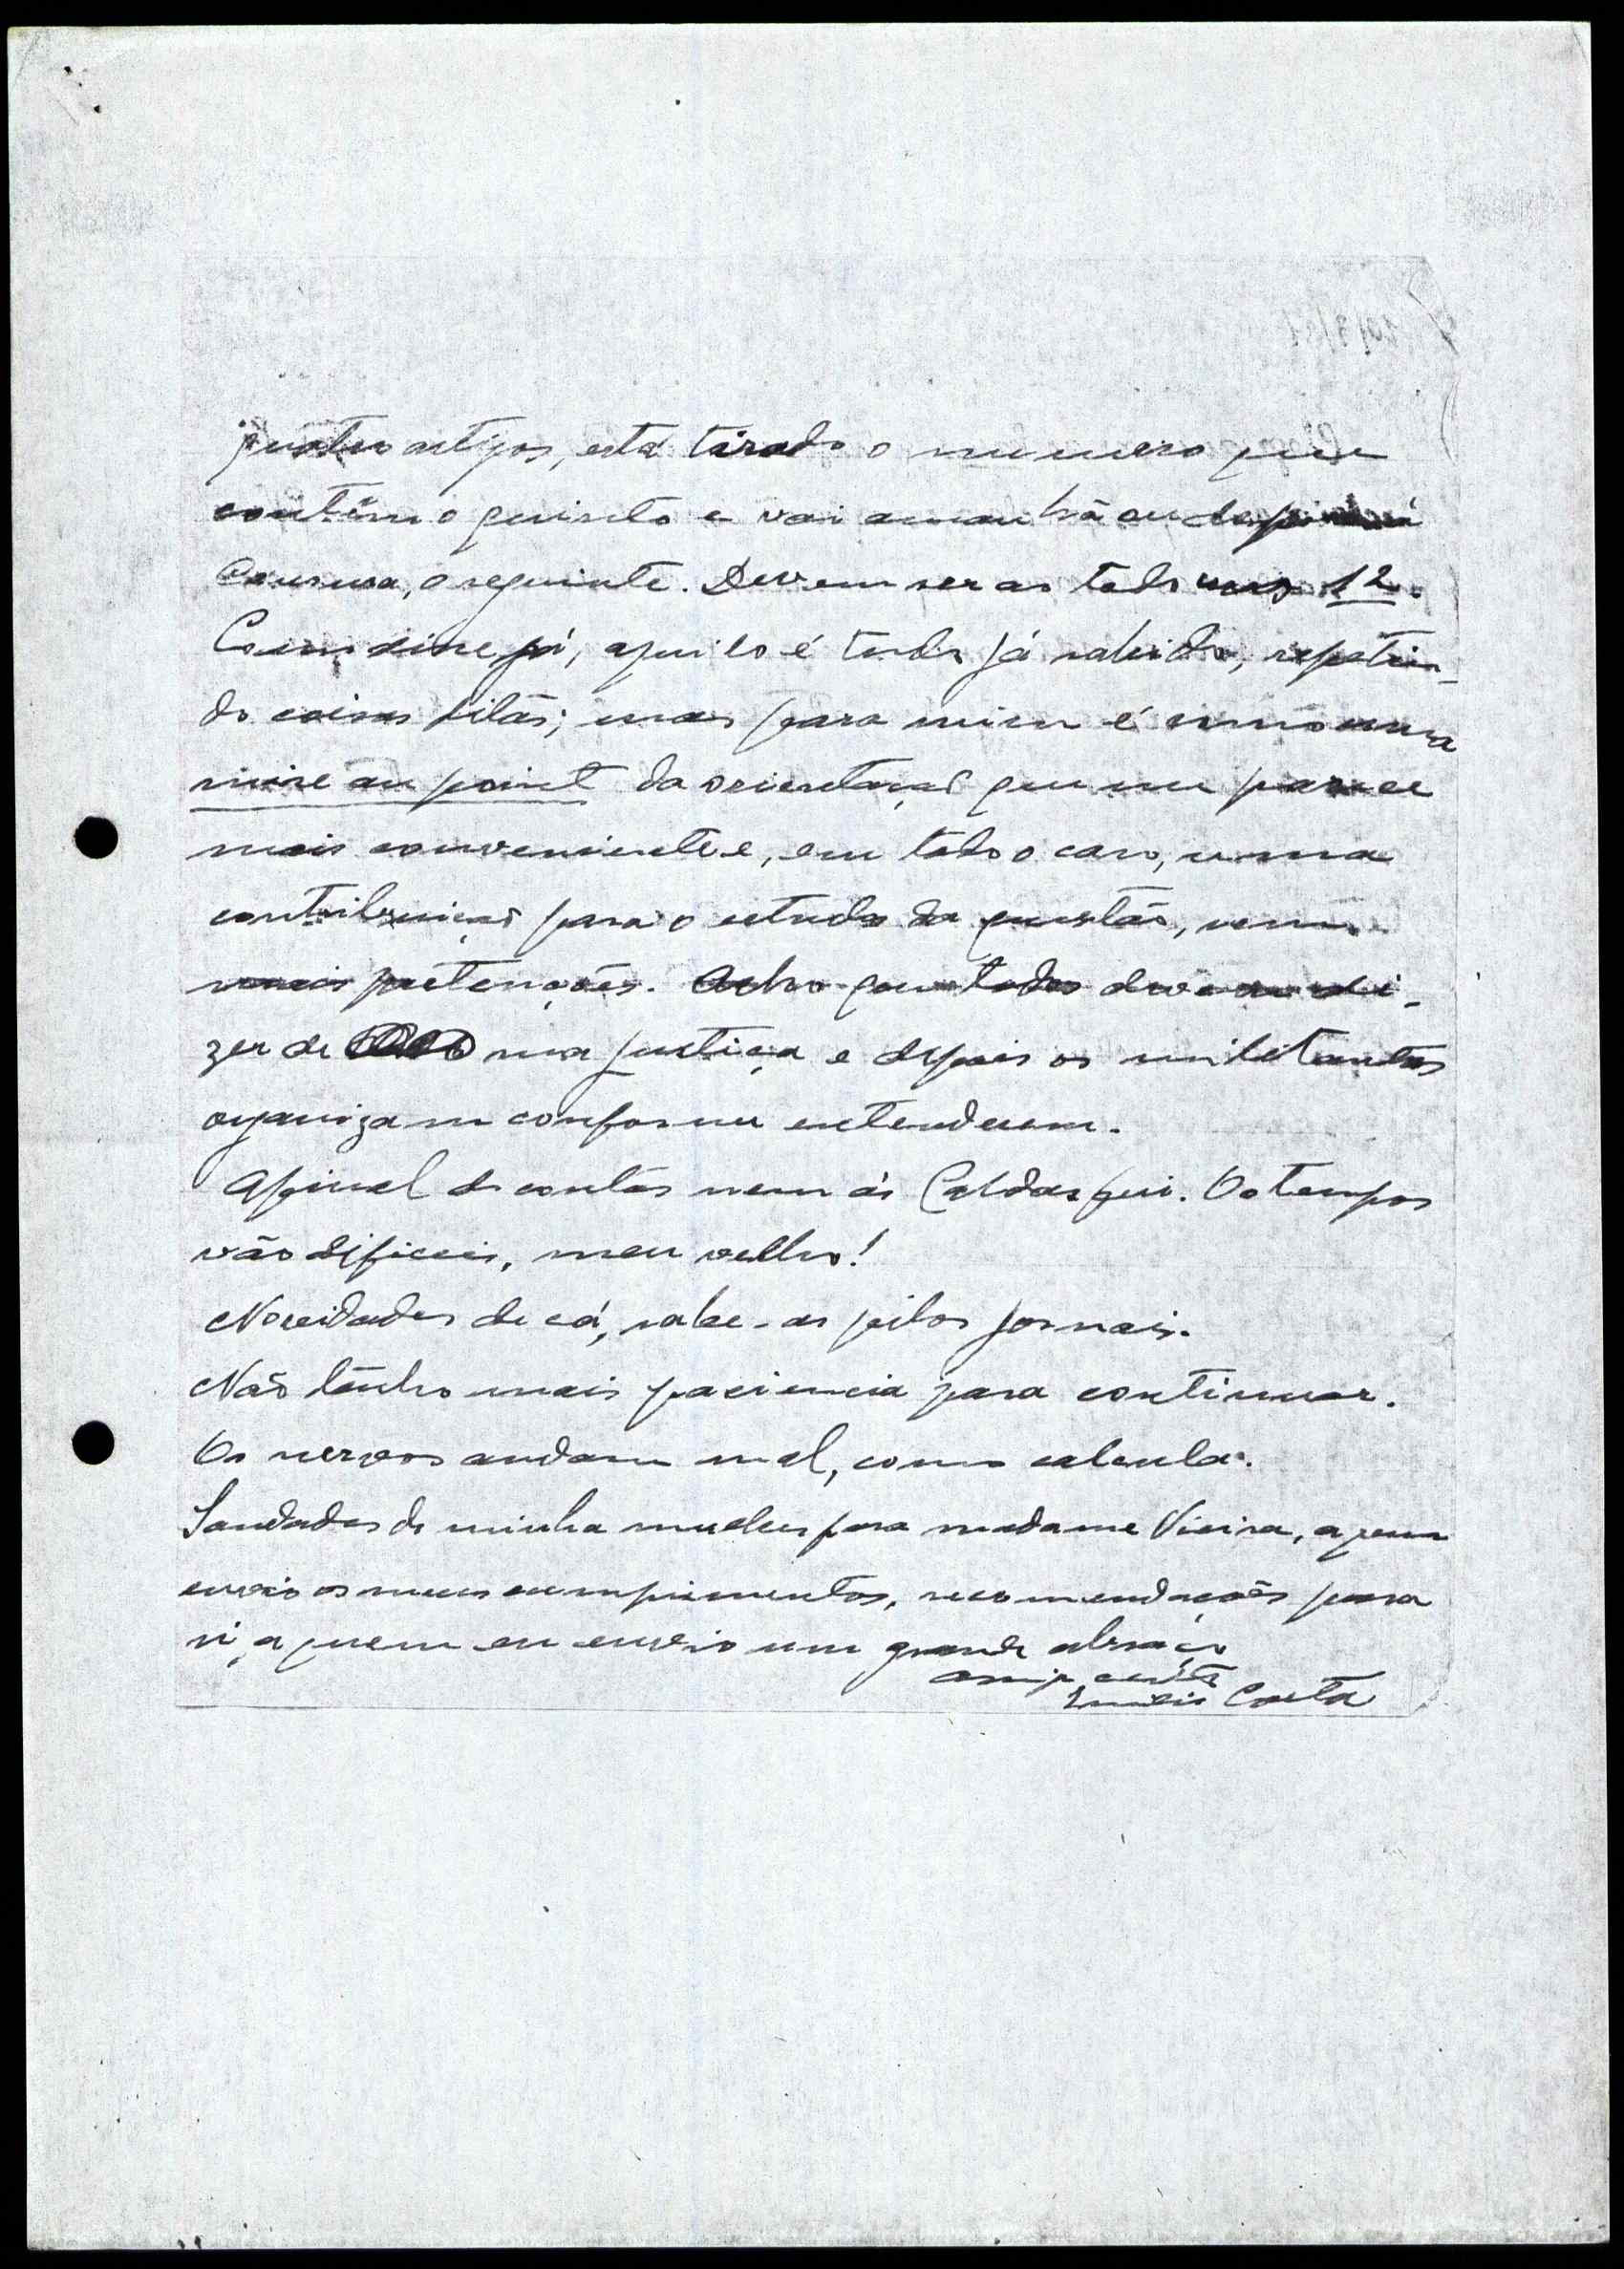 quatro artigos, está tirado o numero que
contêm o quinto e vai amanhã ou depois á
Censura, o seguinte. Devem ser ao todo uns 12.
Como disse já, aquilo é tudo já sabido, repetin-
do coisas ditas; mas para mim é como uma
mise au point da orientação que me parece
mais conveniente e, em todo o caso, uma
contribuição para o estudo da questão, sem
mais pretenções. Acho que todos devem di-
zer de sua justiça e depois os militantes
organizam conforme entenderem.
Afinal de contas nem ás Caldas fui. Os tempos
vão dificeis, meu velho!
Novidades de cá, sabe-as pelos jornais.
Não tenho mais paciencia para continuar.
Os nervos andam mal, como calcula.
Saudades de minha mulher para madame Vieira, a quem
envio os meus cumprimentos, recomendações para
si, a quem eu envio um grande abraço
amigo certo
Emilio Costa